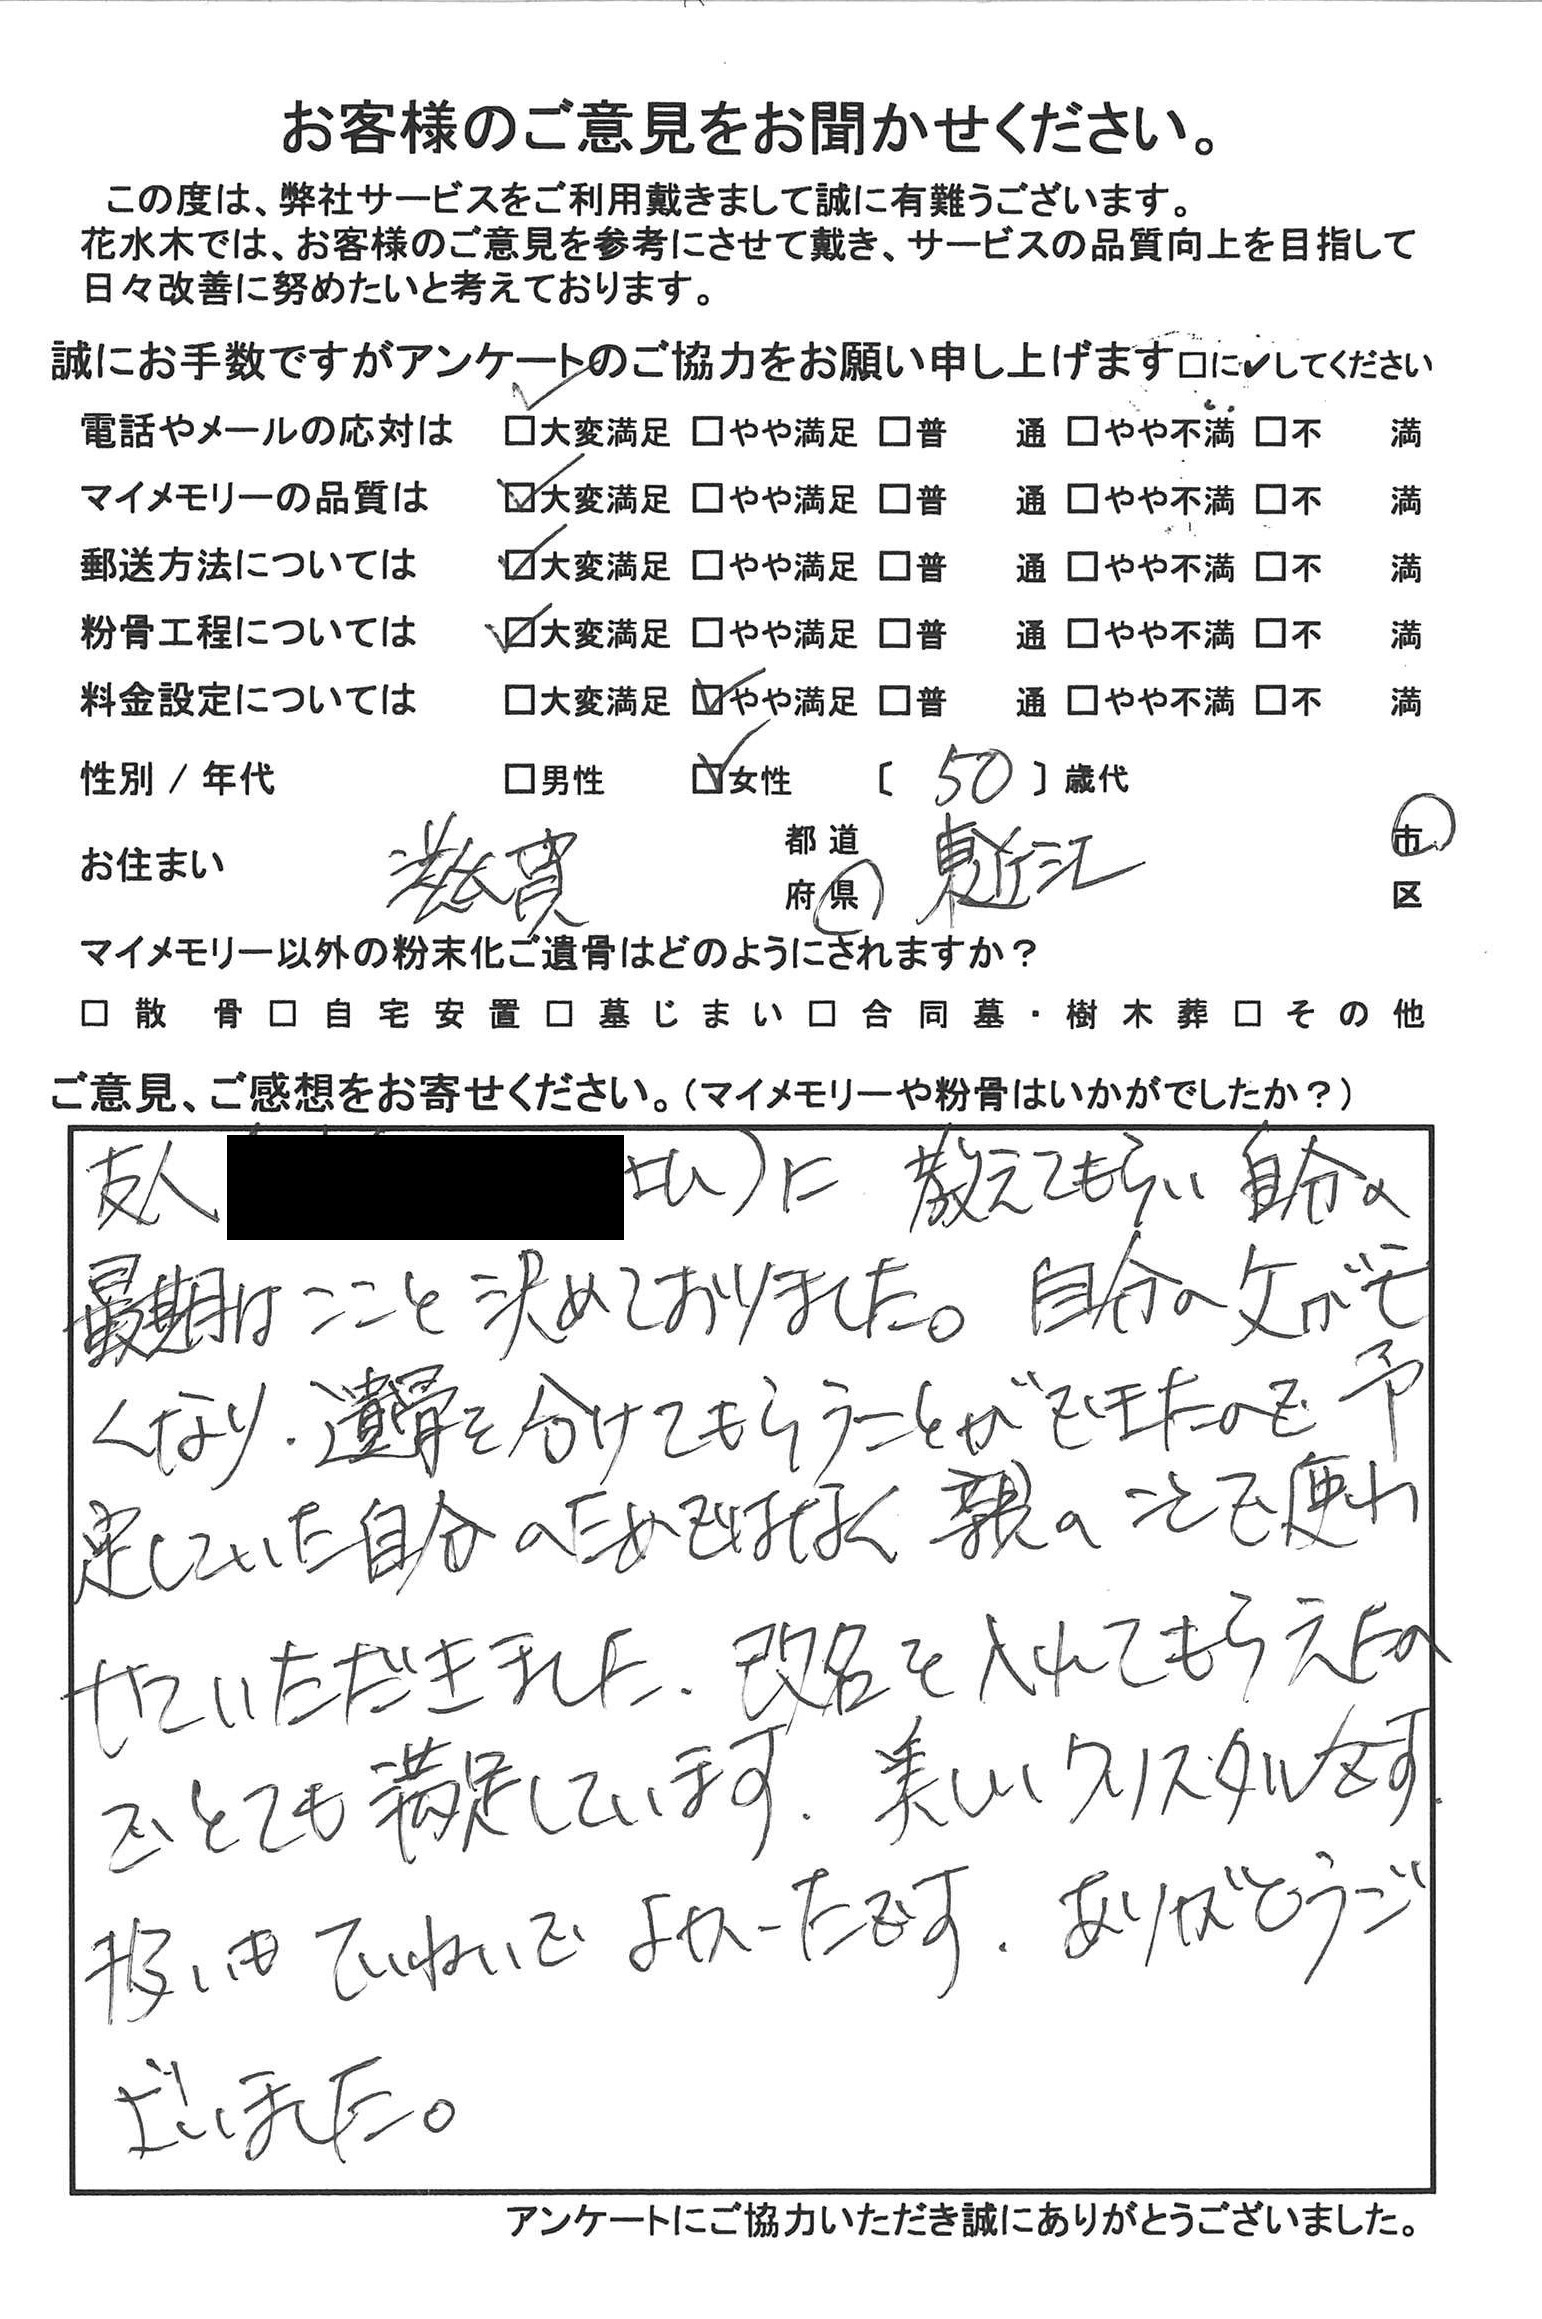 お客様のご意見をお聞かせください。
この度は、弊社サービスをご利用戴きまして誠に有難うございます。
花水木では、お客様のご意見を参考にさせて戴き、サービスの品質向上を目指して
日々改善に努めたいと考えております。
誠にお手数ですがアンケートのご協力をお願い申し上げます□に✔してください
電話やメールの応対は □大変満足 □やや満足 □普 通 □やや不満 □不 満
マイメモリーの品質は ☑大変満足 □やや満足 □普 通 □やや不満 □不 満
郵送方法については ☑大変満足 □やや満足 □普 通 □やや不満 □不 満
粉骨工程については ☑大変満足 □やや満足 □普 通 □やや不満 □不 満
料金設定については □大変満足 ☑やや満足 □普 通 □やや不満 □不 満
性別 / 年代 □男性 ☑女性 〔 50 〕歳代
お住まい 滋賀 都道府県 東近江 市区
マイメモリー以外の粉末化ご遺骨はどのようにされますか？
□散 骨□自宅安置□墓じまい□合同墓・樹木葬□その他
ご意見、ご感想をお寄せください。（マイメモリーや粉骨はいかがでしたか？）
友人 さん）に 教えてもらい 自分の
最期はここと決めておりました。自分の父が亡
くなり、遺骨を分けてもらうことができたので予
定していた自分のためではなく親のことで使わ
せていただきました。改名を入れてもらえたの
でとても満足しています。美しいクリスタルです。
扱いもていねいでよかったです。ありがとうご
ざいました。
アンケートにご協力いただき誠にありがとうございました。